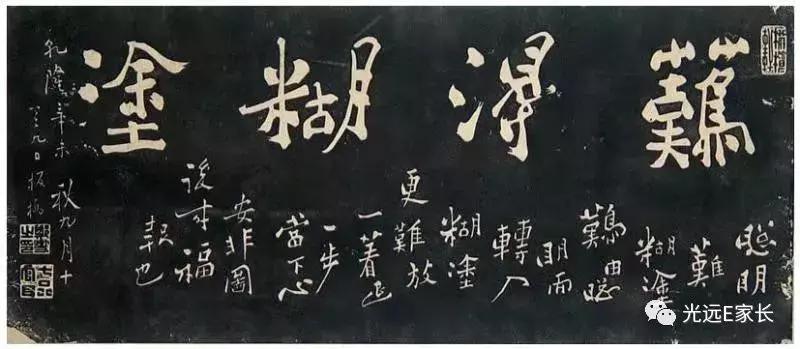 難得糊塗
聰明
難
糊塗
難由聰
明而
轉入
糊塗
更難放
一着退
一步
當下心
安非圖
後来福
報也
乾隆辛未
秋九月十
九日板橋
光远E家长